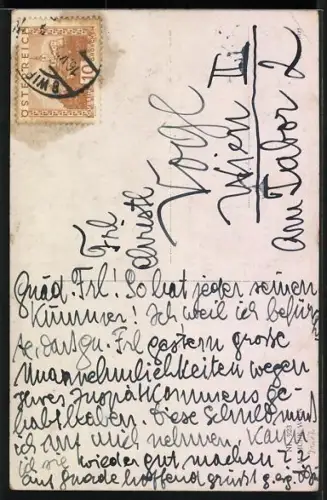 ÖSTERREICH
10
8 WIEN
Frl
Christl
Vogl
Wien II
Am Tabor 2
Gnäd. Frl! So hat jeder seinen
Kummer! Ich weil ich befürch
te, dass gn. Frl gestern große
Unannehmlichkeiten wegen
Ihres Zuspätkommens ge-
habt haben. Diese Schuld muß
ich auf mich nehmen. Kann
ich sie wieder gut machen?
auf Gnade hoffend grüßt